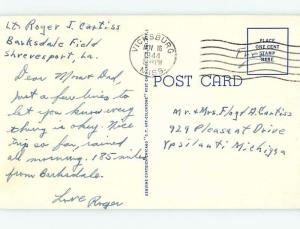 Lt Roger J. Curtiss
Barksdale Field
Shreveport, La.
Dear Mom & Dad,
Just a few lines to
let you know every
thing is okey. Nice
trip so far, rained
all morning. 185 miles
from Barksdale.
Love
Roger
VICKSBURG
NOV 16
1944
MISS.
PLACE
ONE CENT
STAMP
HERE
POST CARD
Mr. & Mrs. Floyd A. Curtiss
929 Pleasant Drive
Ypsilanti Michigan